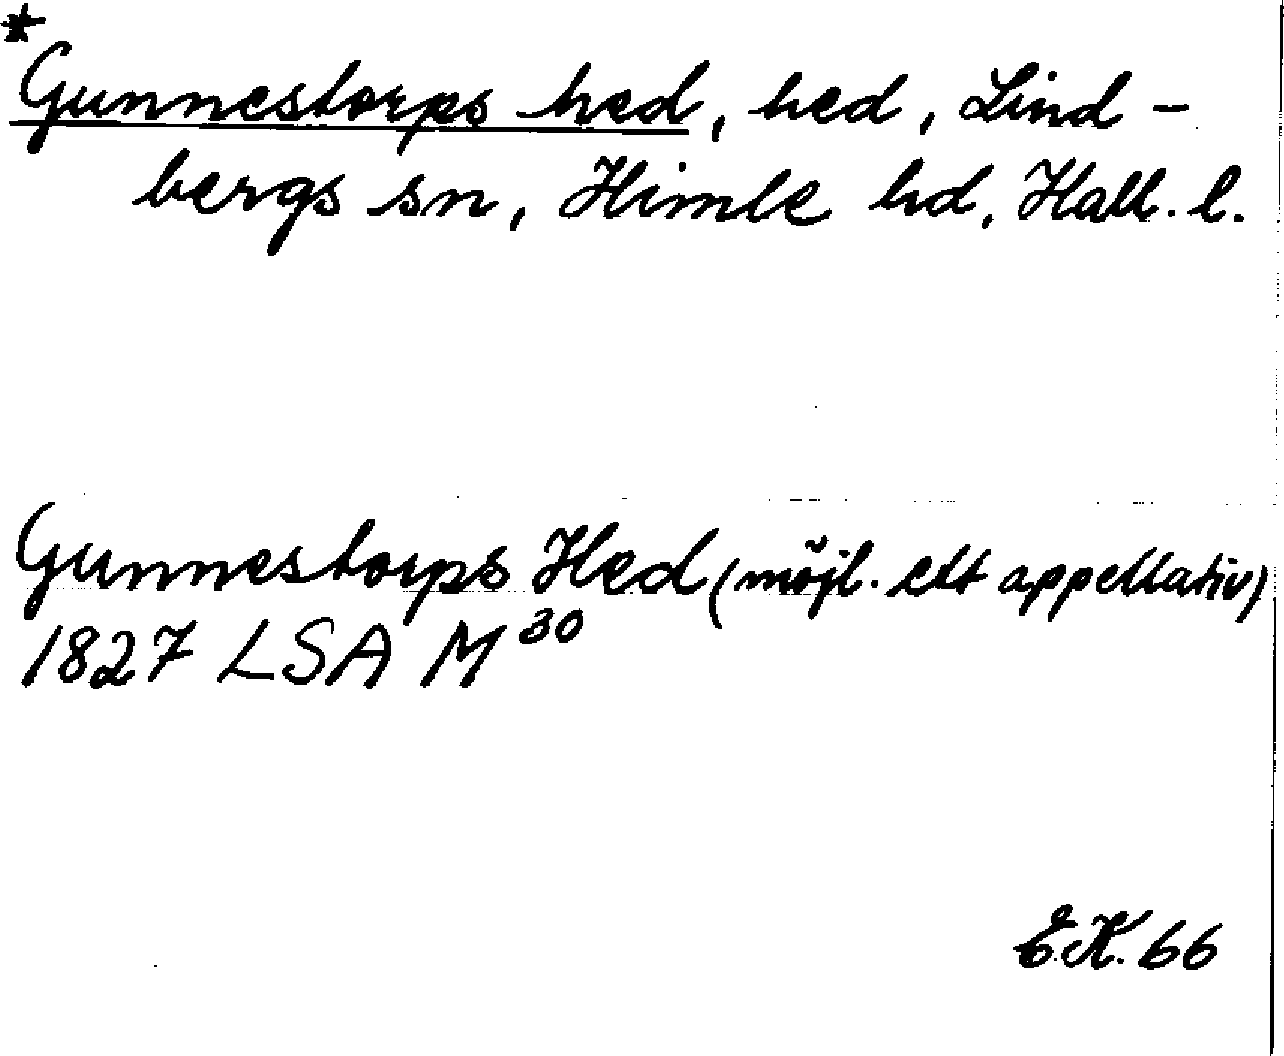 *
Gunnestorps hed, hed, Lind-
bergs sn, Himle hd, Hall. l.
Gunnestorps Hed (möjl. ett appellativ)
1827 LSA M 30
E.K. 66